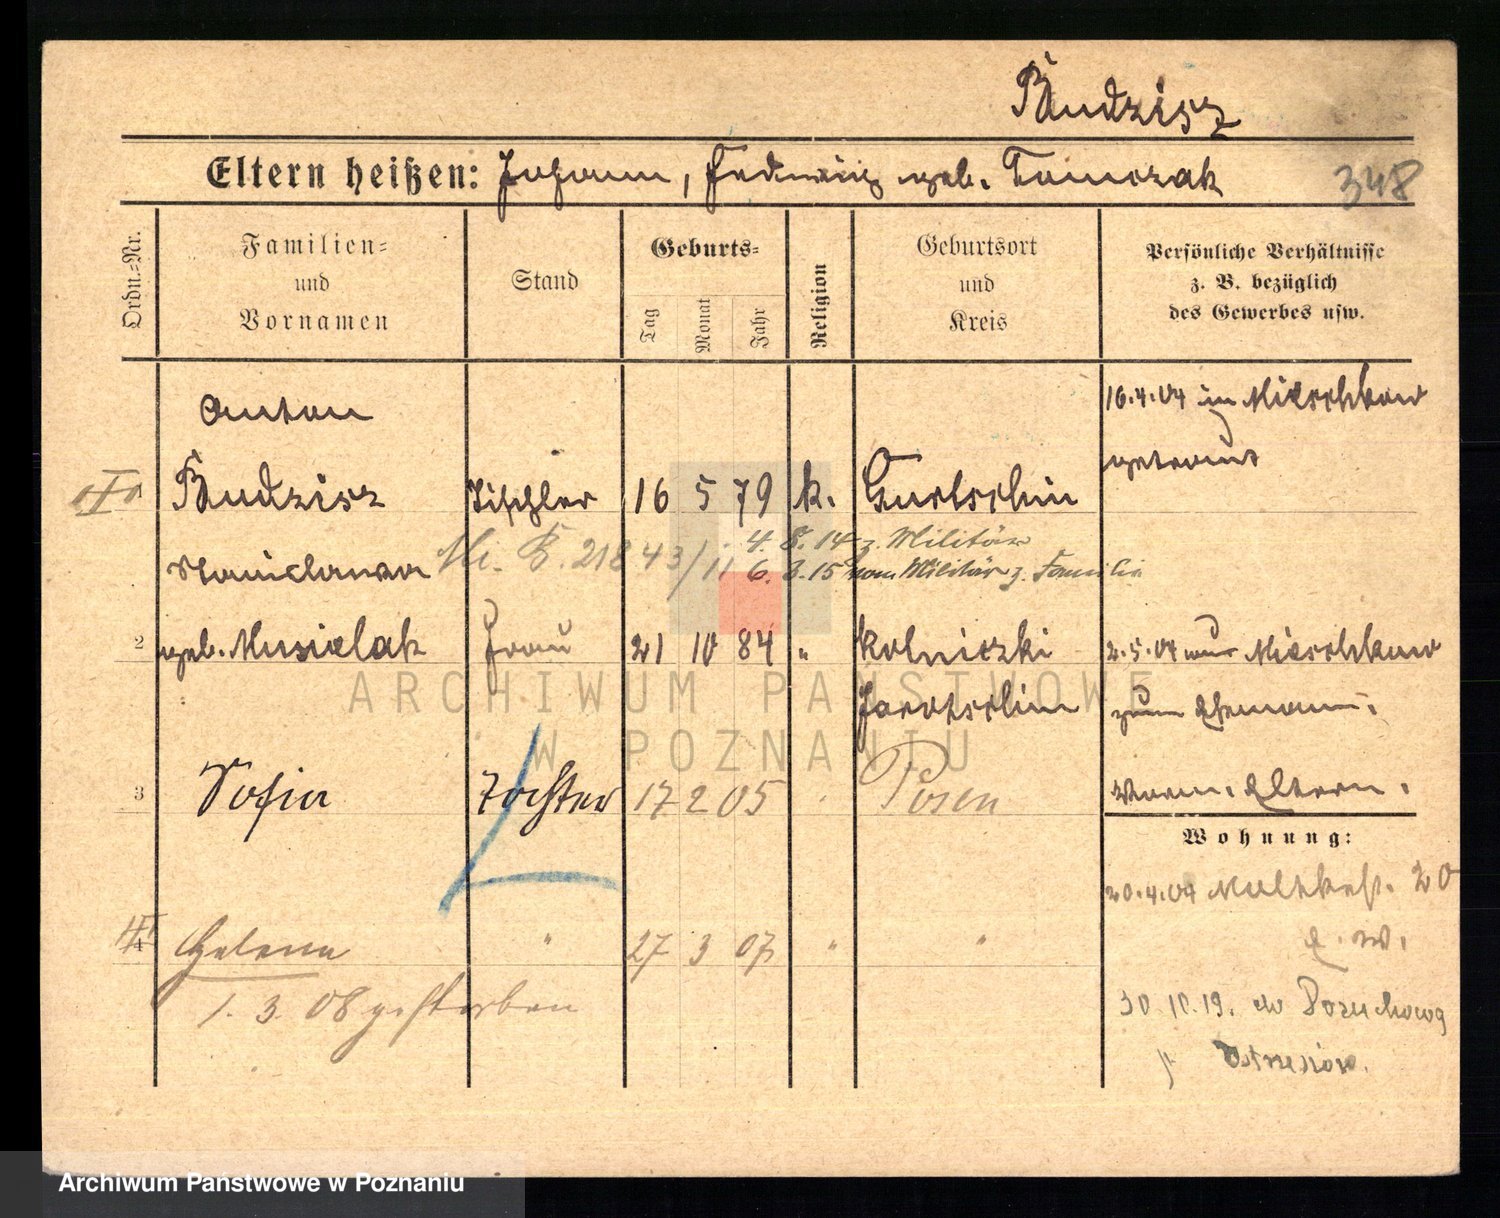 Budzisz
Eltern heißen: Johann, Hedwig geb. Tomczak
348
Ordn.-Nr.
Familien- und Vornamen
Stand
Geburts-
Tag
Monat
Jahr
Religion
Geburtsort und Kreis
Persönliche Verhältnisse z. B. bezüglich des Gewerbes usw.
Anton
16.4.04 in Mieschkow
getraut
1 Budzisz Tischler 16 5 79 k. Gurtschin
Mi. B. 21843/11 4. 8. 14 z. Militär
6. 3. 15 vom Militär z. Familie
Stanislawa
2 geb. Musielak Frau 21 10 84 " Kolniczki
2.5.04 aus Mieschkow
Jarotschin
zum Ehemann.
3 Sofia Tochter 17 2 05 Posen
Vorm. Eltern.
Wohnung:
20.4.04 Moltkestr. 20
4 Helena " 27 3 07 " "
1. 3. 08 gestorben
30.10.19.
ARCHIWUM PAŃSTWOWE
W POZNANIU
Archiwum Państwowe w Poznaniu